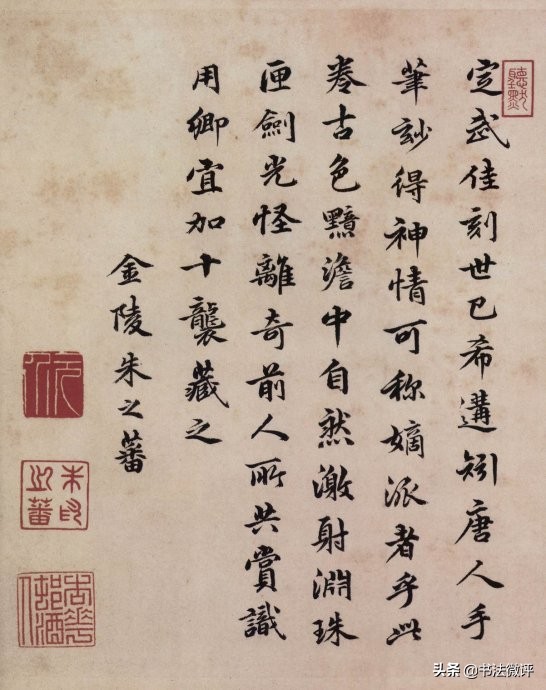 定武佳刻世已希遘矧唐人手
筆玅得神情可称嫡派者乎此
卷古色黯澹中自然激射淵珠
匣劍光怪離奇前人所共賞識
用卿宜加十襲藏之
金陵朱之蕃
朱之蕃印
头条 @书法微评